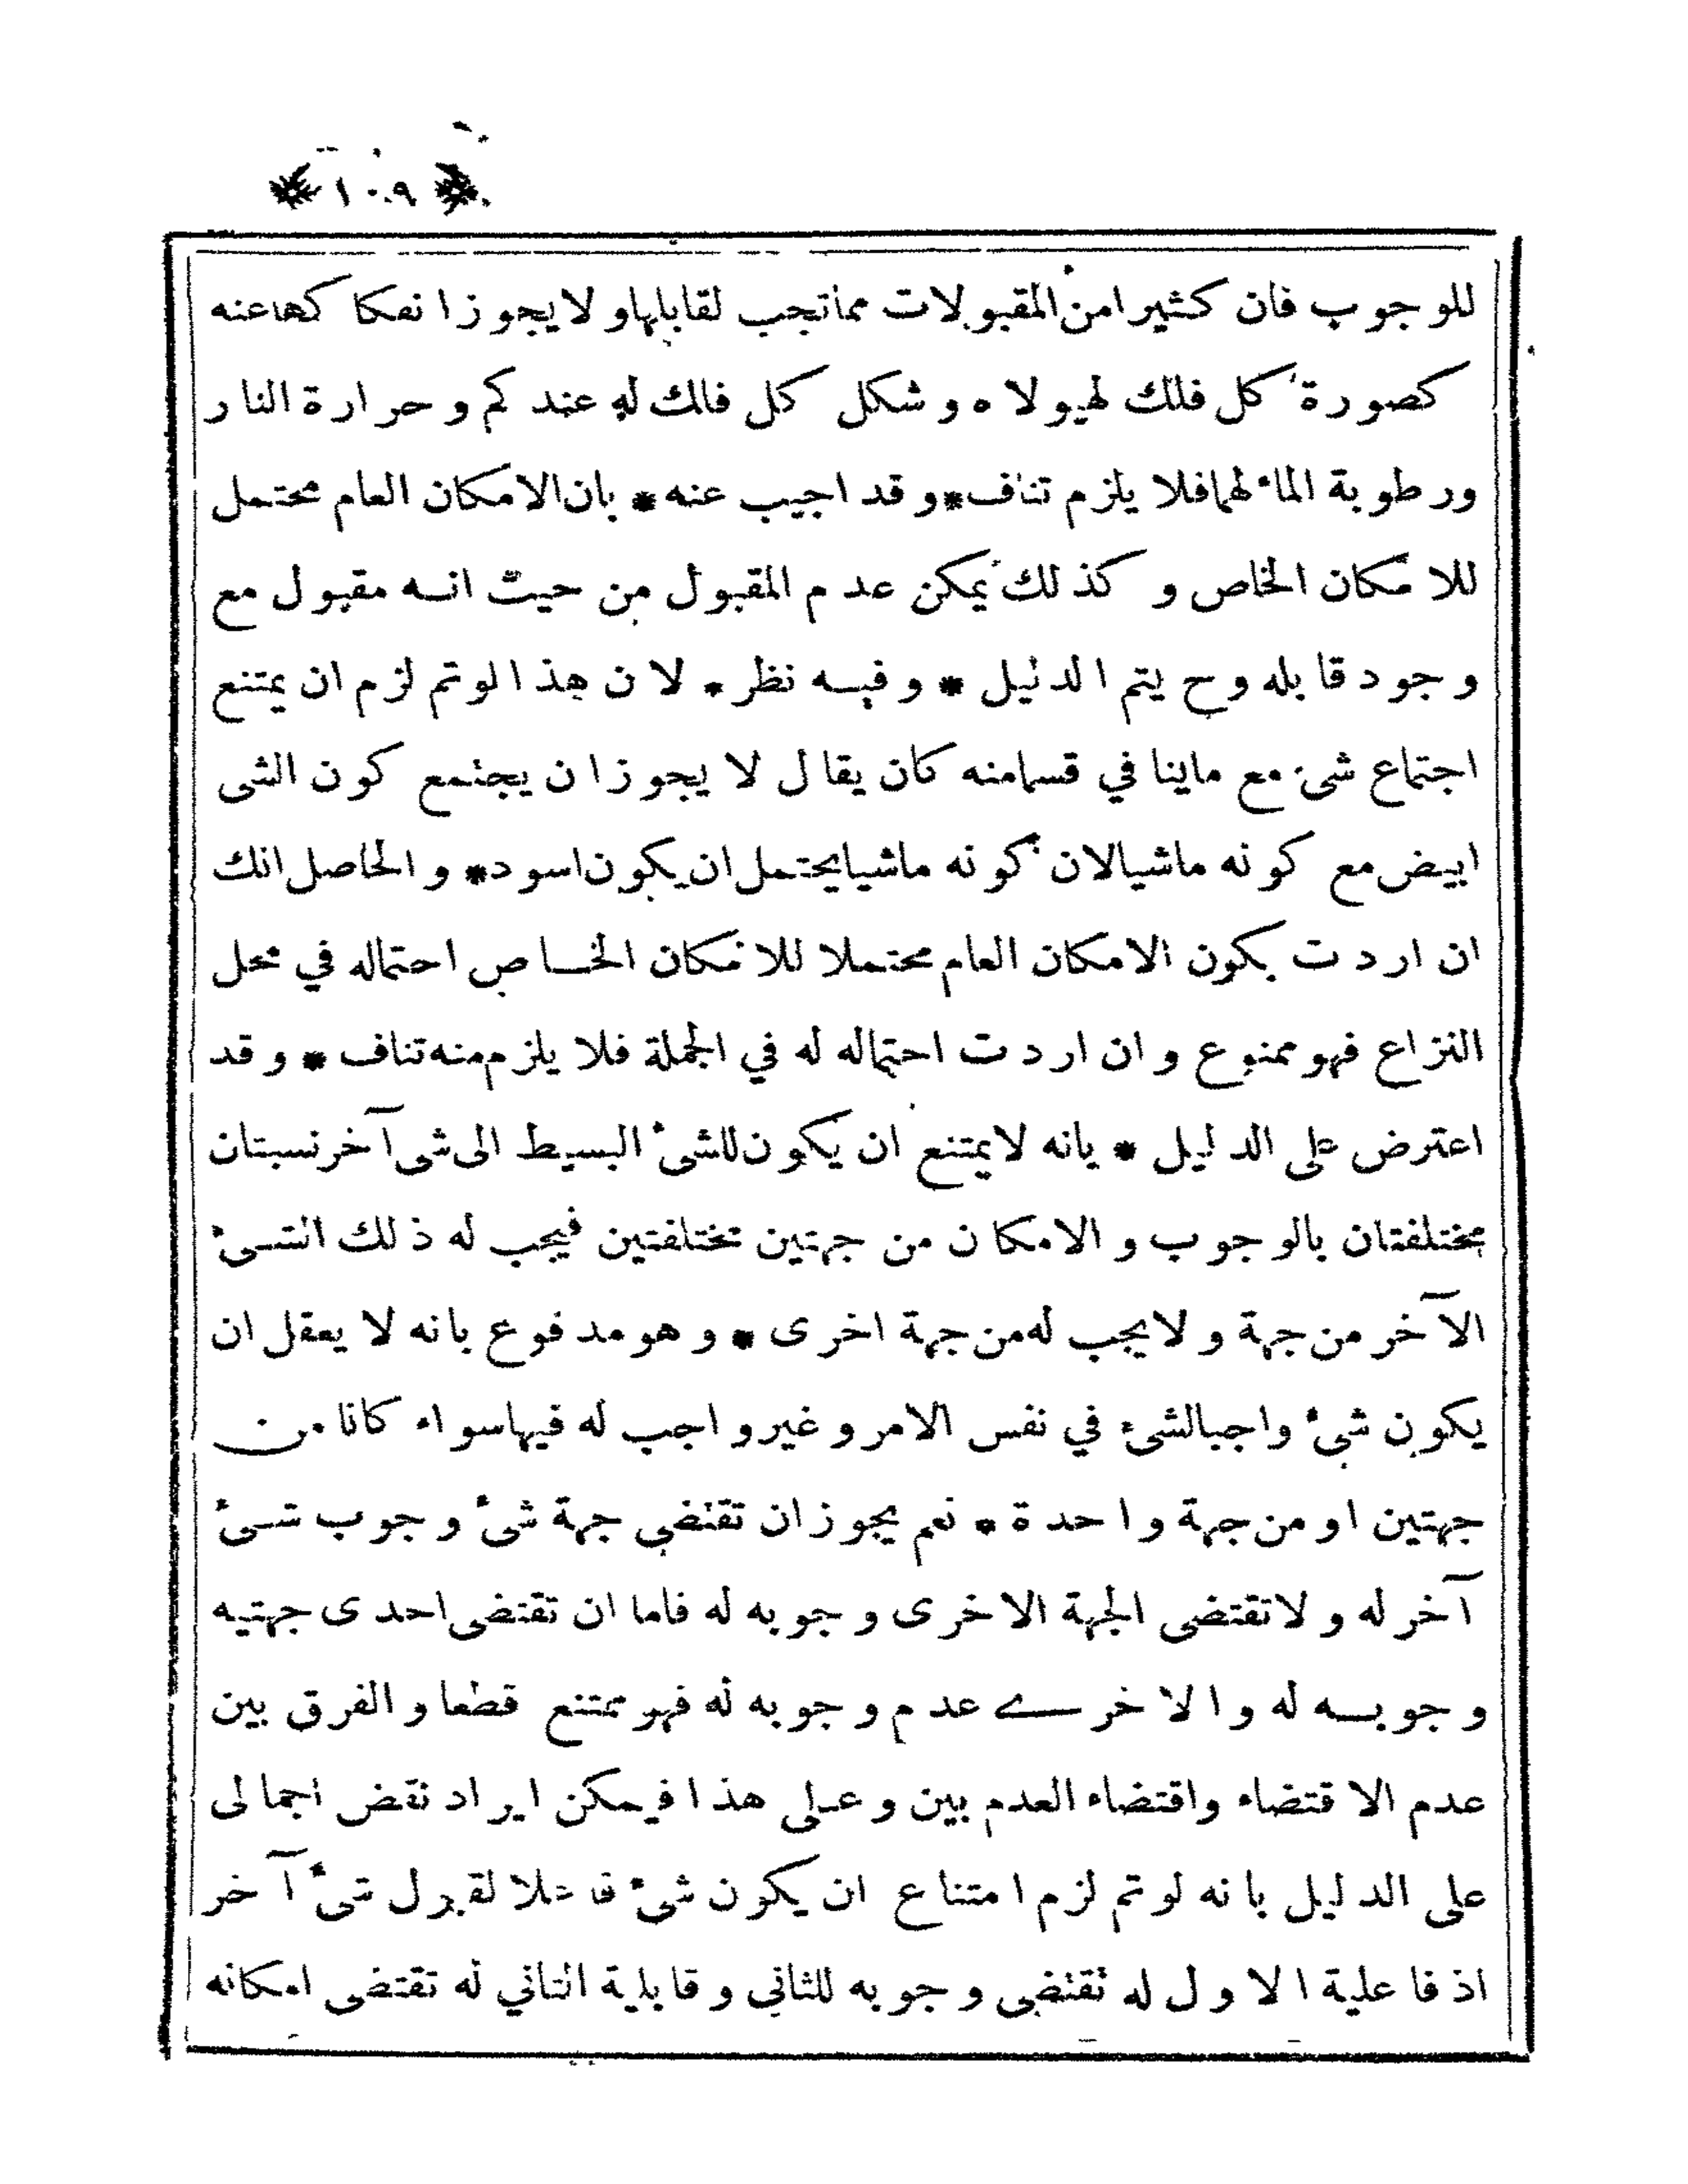 * ١٠٩ *
للوجوب فان كثيرا من المقبولات مما تجب لقابلها ولا يجوز انفكاكها عنه
كصورة كل فلك لهيولاه وشكل كل فلك له عندكم وحرارة النار
ورطوبة الماء لهما فلا يلزم تناف * وقد اجيب عنه * بان الامكان العام محتمل
للامكان الخاص وكذلك يمكن عدم المقبول من حيث انه مقبول مع
وجود قابله وح يتم الدليل * وفيه نظر * لان هذا لو تم لزم ان يمتنع
اجتماع شئ مع ما ينافي قسما منه كان يقال لا يجوز ان يجتمع كون الشى
ابيض مع كونه ماشيا لان كونه ماشيا يحتمل ان يكون اسود * والحاصل انك
ان اردت بكون الامكان العام محتملا للامكان الخاص احتماله في محل
النزاع فهو ممنوع وان اردت احتماله له في الجملة فلا يلزم منه تناف * وقد
اعترض على الدليل * بانه لا يمتنع ان يكون للشئ البسيط الى شى آخر نسبتان
مختلفتان بالوجوب والامكان من جهتين مختلفتين فيجب له ذلك الشئ
الآخر من جهة ولا يجب له من جهة اخرى * وهو مدفوع بانه لا يعقل ان
يكون شئ واجبا لشئ في نفس الامر وغير واجب له فيها سواء كانا من
جهتين او من جهة واحدة * نعم يجوز ان تقتضى جهة شئ وجوب شئ
آخر له ولا تقتضى الجهة الاخرى وجوبه له فاما ان تقتضى احدى جهتيه
وجوبه له والاخرى عدم وجوبه له فهو ممتنع قطعا والفرق بين
عدم الاقتضاء واقتضاء العدم بين وعلى هذا فيمكن ايراد نقض اجمالى
على الدليل بانه لو تم لزم امتناع ان يكون شئ فاعلا لقبول شئ آخر
اذ فاعلية الاول له تقتضى وجوبه للثاني وقابلية الثاني له تقتضى امكانه